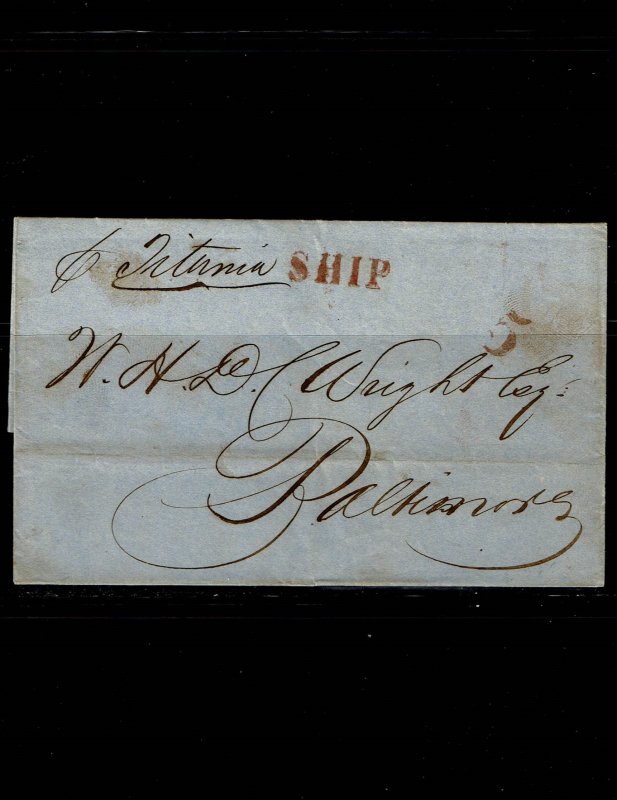 p Titania SHIP
5
W. H. De. C. Wright Esqr.
Baltimore